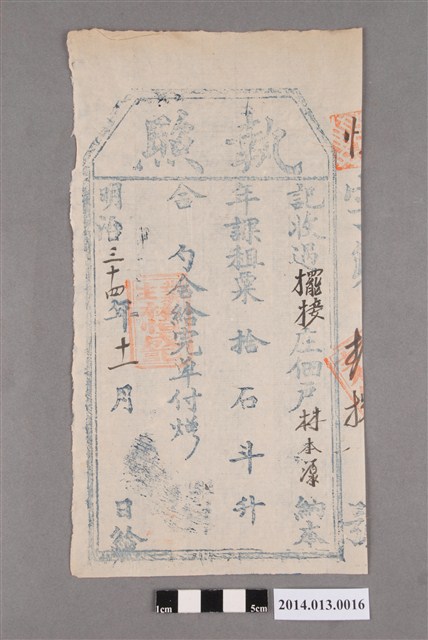 執照
記收過擺接庄佃戶林本源納本
年課租粟拾石斗升
合勺合給完單付炤
明治三十四年十一月日給
1cm
5cm
2014.013.0016